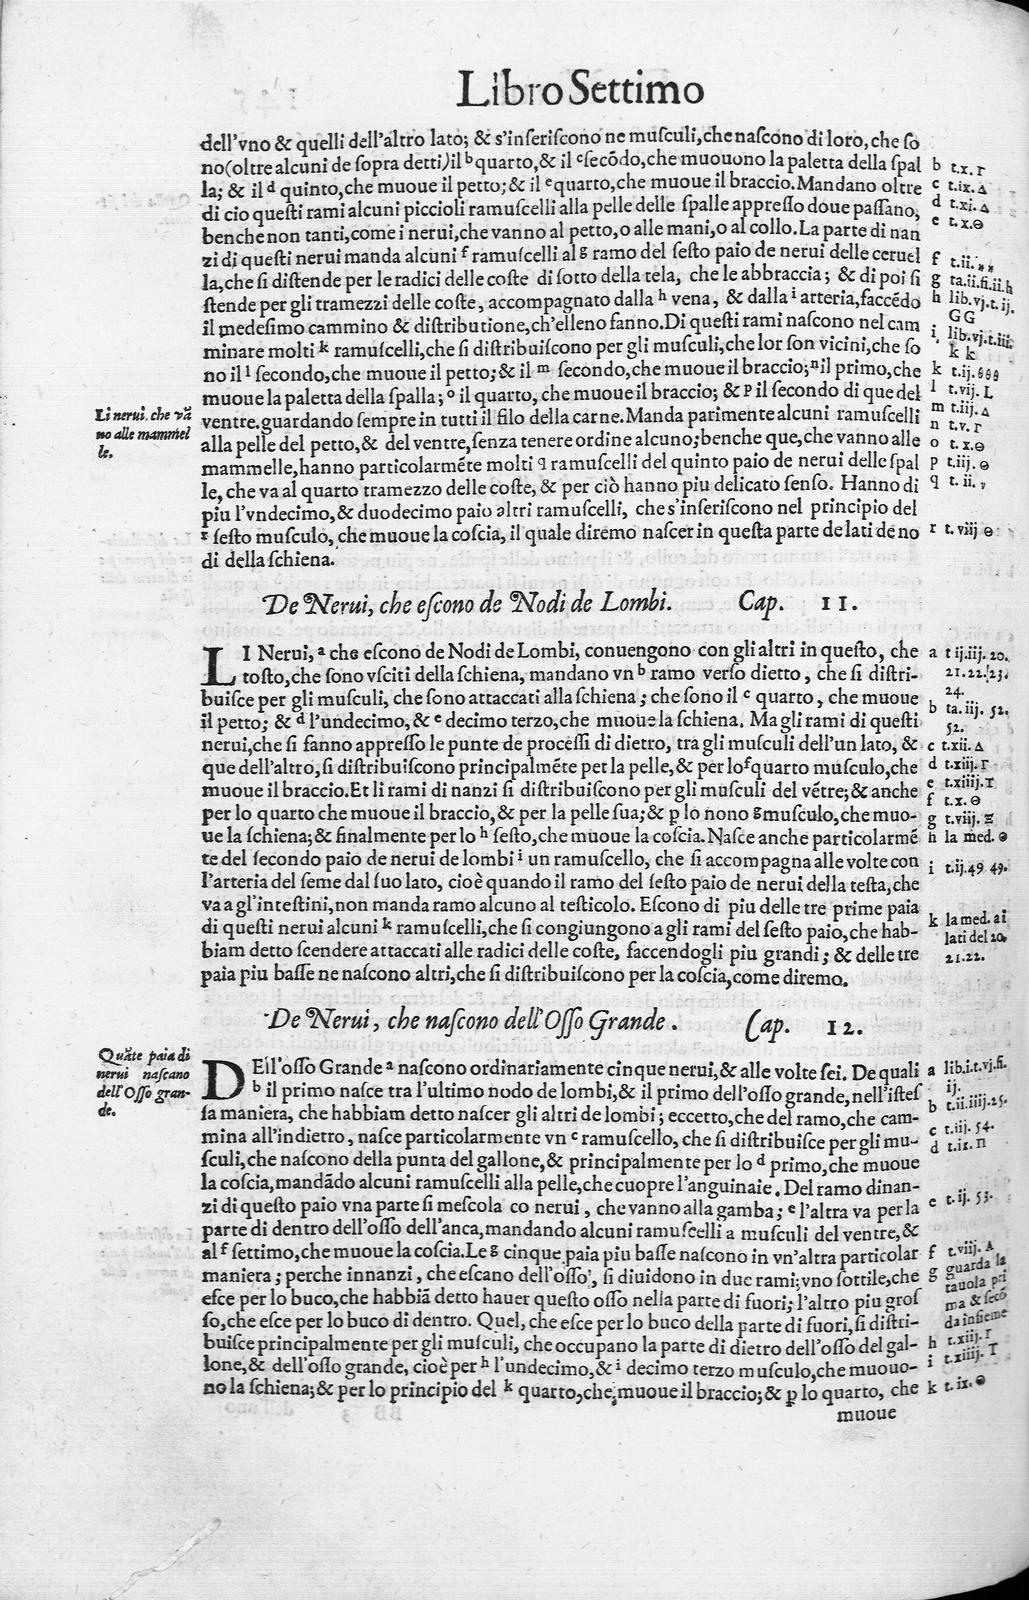 Libro Settimo
dell'vno & quelli dell'altro lato; & s'inſeriſcono ne muſculi, che naſcono di loro, che ſo
no (oltre alcuni de ſopra detti) il b quarto, & il c ſecōdo, che muouono la paletta della ſpal
la; & il d quinto, che muoue il petto; & il e quarto, che muoue il braccio. Mandano oltre
di cio queſti rami alcuni piccioli ramuſcelli alla pelle delle ſpalle appreſſo doue paſſano,
benche non tanti, come i nerui, che vanno al petto, o alle mani, o al collo. La parte di nan
zi di queſti nerui manda alcuni f ramuſcelli al g ramo del ſeſto paio de nerui delle ceruel
la, che ſi diſtende per le radici delle coſte di ſotto della tela, che le abbraccia; & di poi ſi
ſtende per gli tramezzi delle coſte, accompagnato dalla h vena, & dalla i arteria, faccēdo
il medeſimo cammino & diſtributione, ch'elleno fanno. Di queſti rami naſcono nel cam
minare molti k ramuſcelli, che ſi diſtribuiſcono per gli muſculi, che lor ſon vicini, che ſo
no il l ſecondo, che muoue il petto; & il m ſecondo, che muoue il braccio; n il primo, che
muoue la paletta della ſpalla; o il quarto, che muoue il braccio; & p il ſecondo di que del
ventre. guardando ſempre in tutti il filo della carne. Manda parimente alcuni ramuſcelli
alla pelle del petto, & del ventre, ſenza tenere ordine alcuno; benche que, che vanno alle
mammelle, hanno particolarmēte molti q ramuſcelli del quinto paio de nerui delle ſpal
le, che va al quarto tramezzo delle coſte, & per ciò hanno piu delicato ſenſo. Hanno di
piu l'vndecimo, & duodecimo paio altri ramuſcelli, che s'inſeriſcono nel principio del
r ſeſto muſculo, che muoue la coſcia, il quale diremo naſcer in queſta parte de lati de no
di della ſchiena.
b t.x. Γ
c t.ix. Δ
d t.xi. Δ
e t.x. Θ
f t.ii. **
g ta.ii.fi.ii.h
h lib.vj.t.ij.
GG
i lib.vj.t.iii.
k k
k t.ij.
l t.vij. L
m t.iij. Δ
n t.v. Γ
o t.x. Θ
p t.iij. Θ
q t. ii.
r t.viij Θ
Li nerui, che vā
no alle mammel
le.
De Nerui, che eſcono de Nodi de Lombi. Cap. 11.
LI Nerui, a che eſcono de Nodi de Lombi, conuengono con gli altri in queſto, che
toſto, che ſono vſciti della ſchiena, mandano vn b ramo verſo dietto, che ſi diſtri-
buiſce per gli muſculi, che ſono attaccati alla ſchiena; che ſono il c quarto, che muoue
il petto; & d l'undecimo, & e decimo terzo, che muoue la ſchiena. Ma gli rami di queſti
nerui, che ſi fanno appreſſo le punte de proceſſi di dietro, tra gli muſculi dell'un lato, &
que dell'altro, ſi diſtribuiſcono principalmēte per la pelle, & per lo f quarto muſculo, che
muoue il braccio. Et li rami di nanzi ſi diſtribuiſcono per gli muſculi del vētre; & anche
per lo quarto che muoue il braccio, & per la pelle ſua; & p lo nono g muſculo, che muo-
ue la ſchiena; & finalmente per lo h ſeſto, che muoue la coſcia. Naſce anche particolarmē
te del ſecondo paio de nerui de lombi i un ramuſcello, che ſi accompagna alle volte con
l'arteria del ſeme dal ſuo lato, cioè quando il ramo del ſeſto paio de nerui della teſta, che
va a gl'inteſtini, non manda ramo alcuno al teſticolo. Eſcono di piu delle tre prime paia
di queſti nerui alcuni k ramuſcelli, che ſi congiungono a gli rami del ſeſto paio, che hab-
biam detto ſcendere attaccati alle radici delle coſte, faccendogli piu grandi; & delle tre
paia piu baſſe ne naſcono altri, che ſi diſtribuiſcono per la coſcia, come diremo.
a t ij.iij. 20.
21.22.23.
24.
b ta.iij. 52.
52.
c t.xii. Δ
d t.xiij. Γ
e t.xiiij. Γ
f t.x. Θ
g t.viij. Ξ
h la med. Θ
i t.ij.49 49.
k la med. ai
lati del 20.
21.22.
De Nerui, che naſcono dell'Oſſo Grande. Cap. 12.
DEll'oſſo Grande a naſcono ordinariamente cinque nerui, & alle volte ſei. De quali
b il primo naſce tra l'ultimo nodo de lombi, & il primo dell'oſſo grande, nell'iſteſ
ſa maniera, che habbiam detto naſcer gli altri de lombi; eccetto, che del ramo, che cam-
mina all'indietro, naſce particolarmente vn c ramuſcello, che ſi diſtribuiſce per gli mu-
ſculi, che naſcono della punta del gallone, & principalmente per lo d primo, che muoue
la coſcia, mandādo alcuni ramuſcelli alla pelle, che cuopre l'anguinaie. Del ramo dinan-
zi di queſto paio vna parte ſi meſcola co nerui, che vanno alla gamba; e l'altra va per la
parte di dentro dell'oſſo dell'anca, mandando alcuni ramuſcelli a muſculi del ventre, &
al f ſettimo, che muoue la coſcia. Le g cinque paia piu baſſe naſcono in vn'altra particolar
maniera; perche innanzi, che eſcano dell'oſſo, ſi diuidono in due rami; vno ſottile, che
eſce per lo buco, che habbiā detto hauer queſto oſſo nella parte di fuori; l'altro piu groſ
ſo, che eſce per lo buco di dentro. Quel, che eſce per lo buco della parte di fuori, ſi diſtri-
buiſce principalmente per gli muſculi, che occupano la parte di dietro dell'oſſo del gal-
lone, & dell'oſſo grande, cioè per h l'undecimo, & i decimo terzo muſculo, che muouo-
no la ſchiena; & per lo principio del k quarto, che muoue il braccio; & p lo quarto, che
muoue
Quāte paia di
nerui naſcano
dell'Oſſo gran-
de.
a lib.i.t.vj.fi.
ij.
b t.ii.iiij.25.
c t.iij. 54.
d t.ix. Π
e t.ij. 53.
f t.viij. Λ
g guarda la
tauola pri
ma & ſecō
da inſieme
h t.xiij. Γ
i t.xiiij. T
k t.ix. Θ